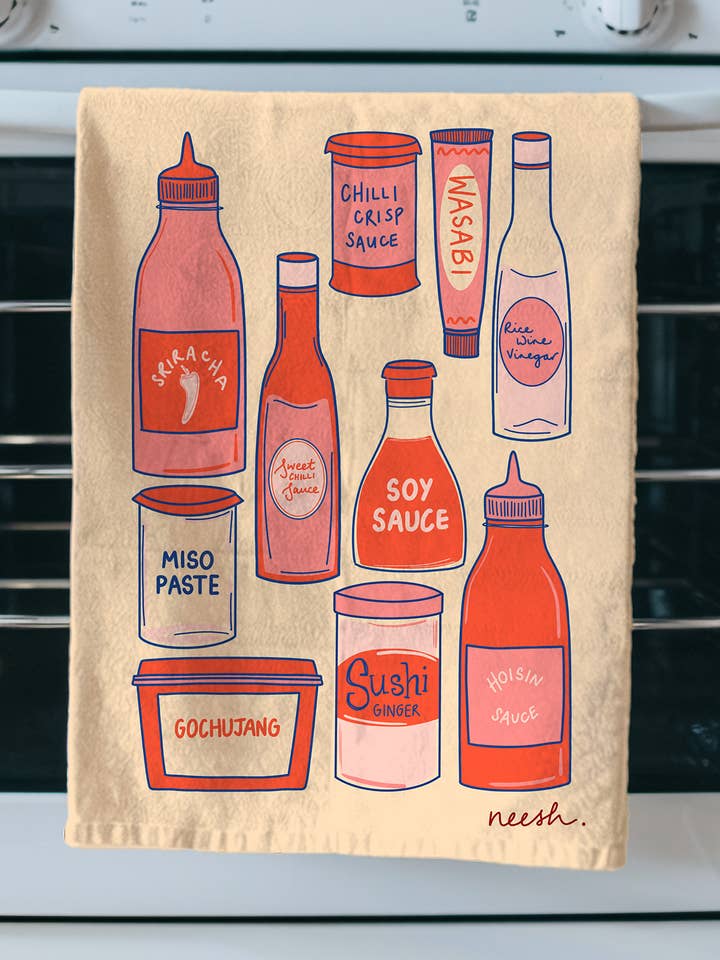 CHILLI
CRISP
SAUCE
WASABI
SRIRACHA
Rice
Wine
Vinegar
Sweet
CHILLI
Sauce
SOY
SAUCE
MISO
PASTE
Sushi
GINGER
HOISIN
SAUCE
GOCHUJANG
neesh.